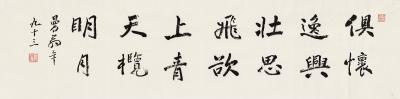 俱懷
逸興
壯思
飛欲
上青
天欖
明月
曼翁年
九十三